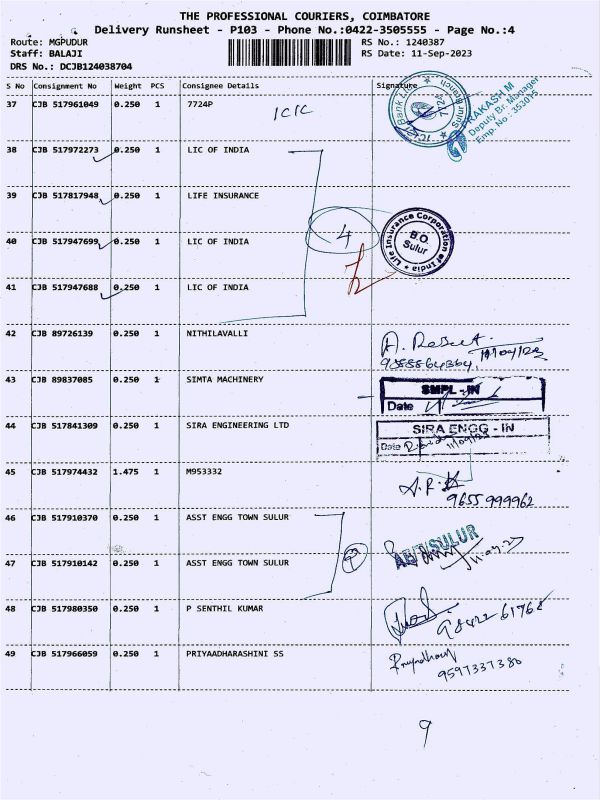 THE PROFESSIONAL COURIERS, COIMBATORE
Delivery Runsheet - P103 - Phone No.:0422-3505555 - Page No.:4
Route: MGPUDUR RS No.: 1240387
Staff: BALAJI RS Date: 11-Sep-2023
DRS No.: DCJB124038704
S No Consignment No Weight PCS Consignee Details Signature
37 CJB 517961049 0.250 1 7724P ICIC
Bank Ltd Sulur Branch 7724
RAKASH M
Deputy Br. Manager
Emp. No : 353015
38 CJB 517972273 0.250 1 LIC OF INDIA
39 CJB 517817948 0.250 1 LIFE INSURANCE
40 CJB 517947699 0.250 1 LIC OF INDIA
4
Life Insurance Corporation of India
B.O.
Sulur
41 CJB 517947688 0.250 1 LIC OF INDIA
42 CJB 89726139 0.250 1 NITHILAVALLI
43 CJB 89837085 0.250 1 SIMTA MACHINERY
SMPL - IN
Date
44 CJB 517841309 0.250 1 SIRA ENGINEERING LTD
SIRA ENGG - IN
Date 11/09/23
45 CJB 517974432 1.475 1 M953332
9655 999962
46 CJB 517910370 0.250 1 ASST ENGG TOWN SULUR
SULUR
47 CJB 517910142 0.250 1 ASST ENGG TOWN SULUR
48 CJB 517980350 0.250 1 P SENTHIL KUMAR
98422 61768
49 CJB 517966059 0.250 1 PRIYAADHARASHINI SS
9597337380
9